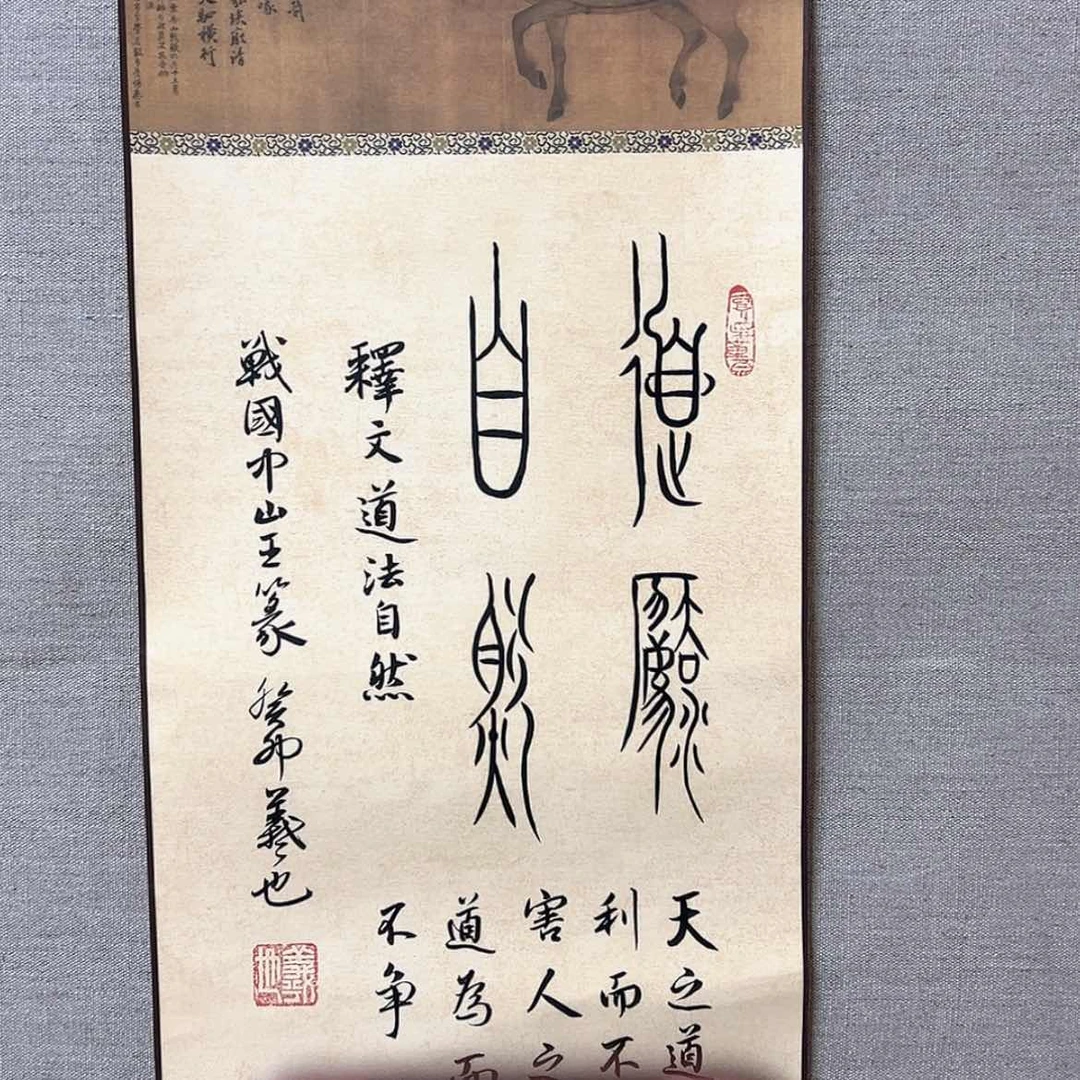 道灋
自然
釋文道法自然
戰國中山王篆 癸卯羲之也
天之道
利而不
害人之
道為而
不争